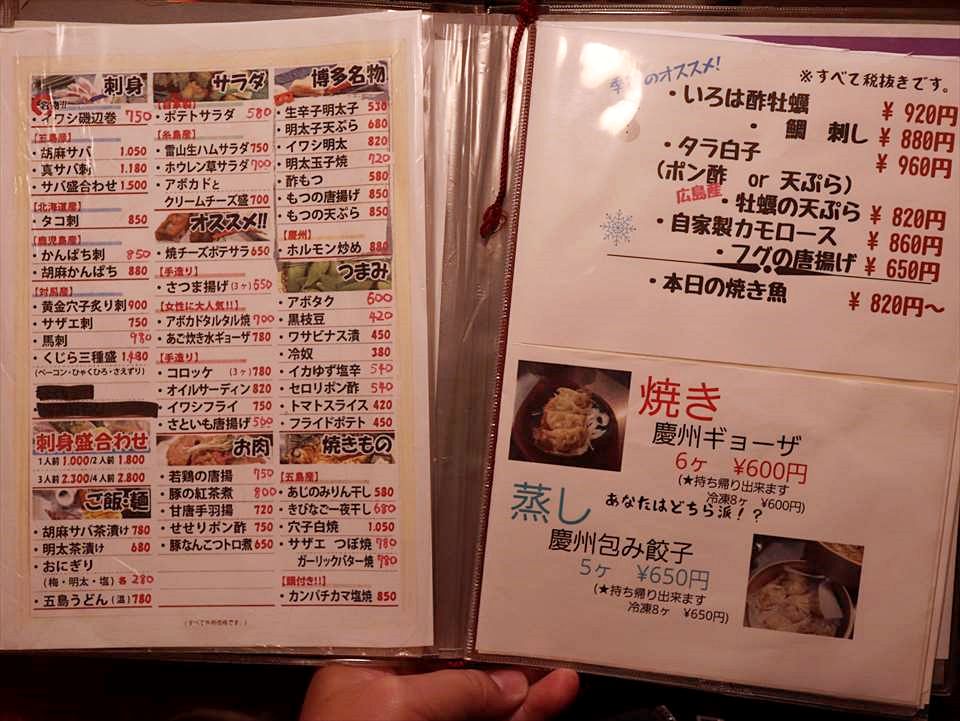 刺身
名物!!
・イワシ磯辺巻 750
【五島産】
・胡麻サバ 1.050
・真サバ刺 1.180
・サバ盛合わせ 1.500
【北海道産】
・タコ刺 850
【鹿児島産】
・かんぱち刺 850
・胡麻かんぱち 880
【対馬産】
・黄金穴子炙り刺 900
・サザエ刺 750
・馬刺 980
・くじら三種盛
(ベーコン・ひゃくひろ・さえずり)
刺身盛合わせ
1人前 1.000/2人前 1.800
3人前 2.300/4人前 2.800
ご飯・麺
・胡麻サバ茶漬け 780
・明太茶漬け 680
・おにぎり
(梅・明太・塩) 各 280
・五島うどん (温) 780
サラダ
・ポテトサラダ 580
【糸島産】
・雷山生ハムサラダ 750
・ホウレン草サラダ 700
・アボカドと
クリームチーズ盛 700
オススメ!!
・焼チーズポテサラ 650
【手造り】
・さつま揚げ (3ヶ) 650
【女性に大人気!!】
・アボカドタルタル焼 700
・あご炊き水ギョーザ 780
【手造り】
・コロッケ (3ヶ) 780
・オイルサーディン 820
・イワシフライ 750
・さといも唐揚げ 500
お肉
・若鶏の唐揚 750
・豚の紅茶煮 800
・甘唐手羽揚 720
・せせりポン酢 750
・豚なんこつトロ煮 650
(すべて外税価格です。)
博多名物
・生辛子明太子 530
・明太子天ぷら 680
・イワシ明太 820
・明太玉子焼 720
・酢もつ 580
・もつの唐揚げ 850
・もつの天ぷら 850
【慶州】
・ホルモン炒め 880
つまみ
・アボタク 600
・黒枝豆 420
・ワサビナス漬 450
・冷奴 380
・イカゆず塩辛 540
・セロリポン酢 540
・トマトスライス 420
・フライドポテト 450
焼きもの
【五島産】
・あじのみりん干し 580
・きびなご一夜干し 680
・穴子白焼 1.050
・サザエ つぼ焼 780
ガーリックバター焼 780
【頭付き!!】
・カンパチカマ塩焼 850
のオススメ!
※すべて税抜きです。
・いろは酢牡蠣 ¥ 920円
・鯛 刺し ¥ 880円
・タラ白子 ¥ 960円
(ポン酢 or 天ぷら)
広島産
・牡蠣の天ぷら ¥ 820円
・自家製カモロース ¥ 860円
・フグの唐揚げ ¥ 650円
・本日の焼き魚 ¥ 820円〜
焼き
慶州ギョーザ
6ヶ ¥600円
(★持ち帰り出来ます
冷凍8ヶ ¥600円)
あなたはどちら派!?
蒸し
慶州包み餃子
5ヶ ¥650円
(★持ち帰り出来ます
冷凍8ヶ ¥650円)